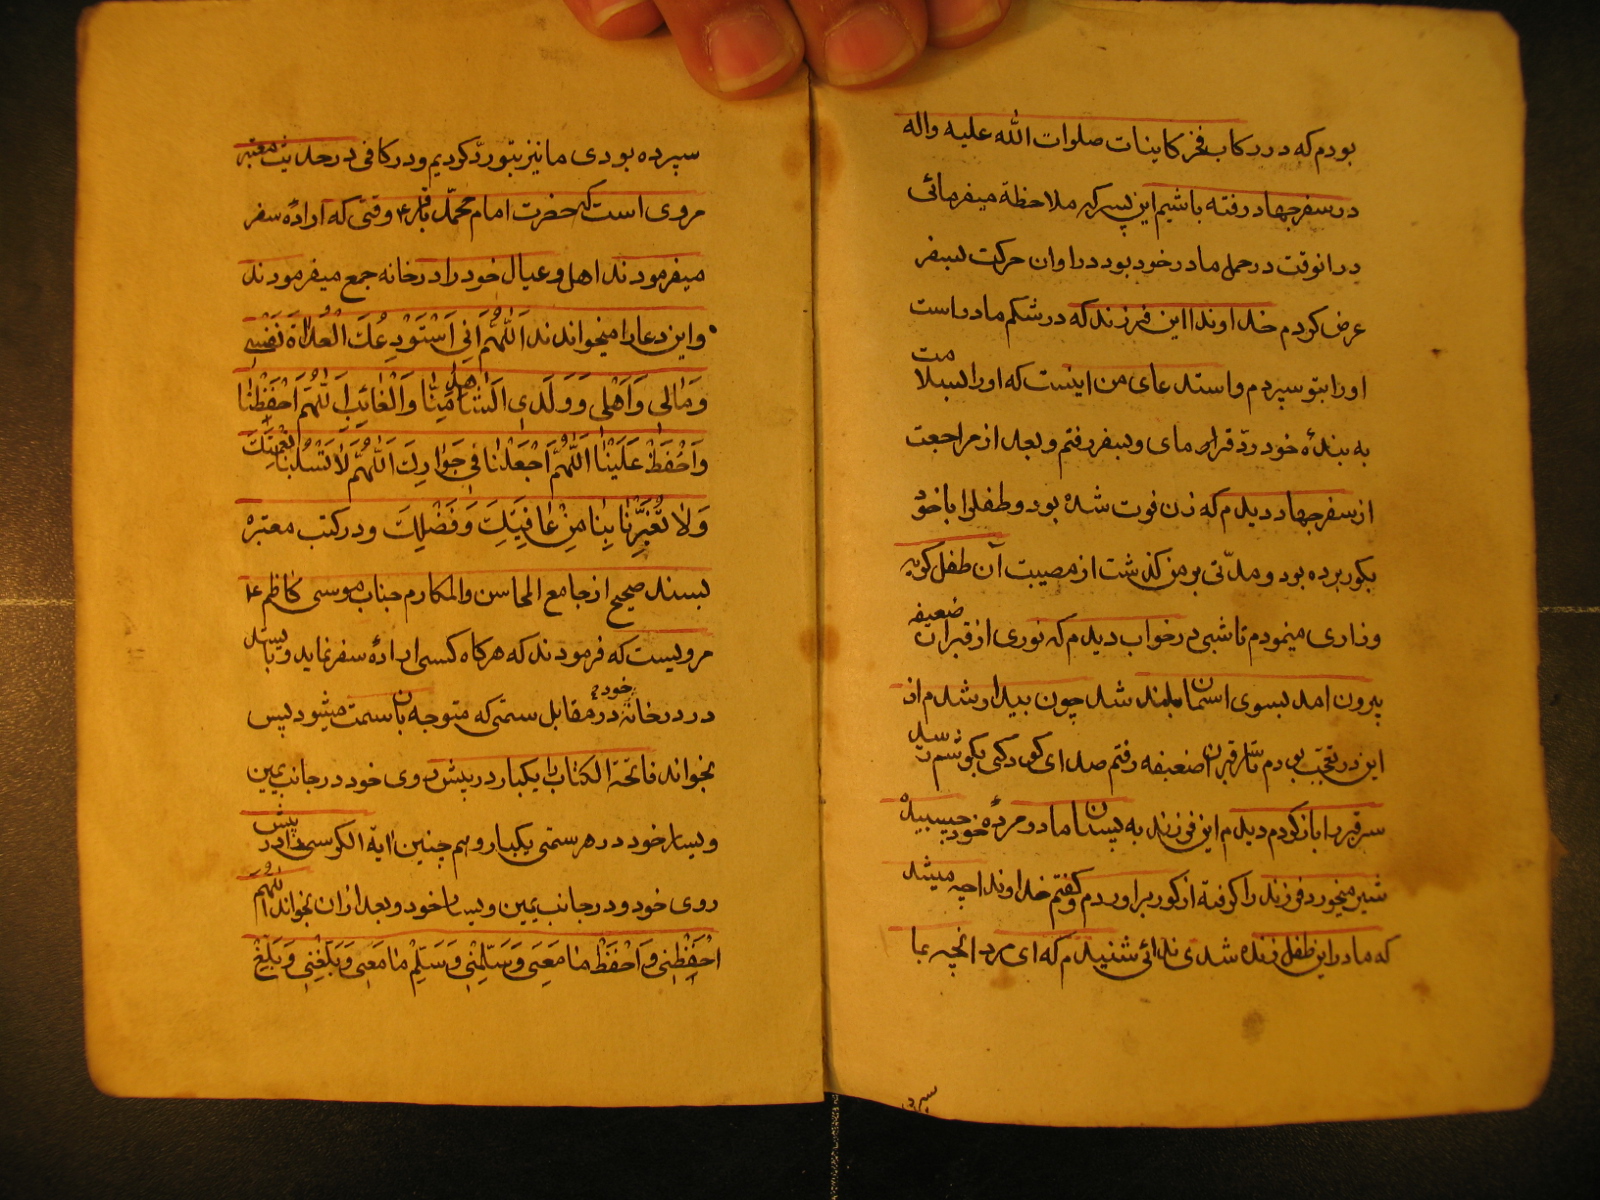 بودم که در رکاب فخر کاینات صلوات الله علیه واله
در سفر جهاد رفته باشیم این پسر که ملاحظة میفرمائی
در انوقت در حمل مادر خود بود در اوان حرکت بسفر
عرض کردم خداوندا این فرزند که در شکم مادر است
اورا بتو سپردم واستدعای من اینست که اورا بسلامت
به بندهٔ خود ردّ فرمای وبسفر رفتم وبعد از مراجعت
از سفر جهاد دیدم که زن فوت شده بود وطفل را با خود
بکور برده بود ومدّتی بر من کذشت از مصیبت آن طفل کریه
وزاری مینمودم تا شبی در خواب دیدم که نوری از قبر آن ضعیفه
بیرون امد بسوی اسمان بلند شد چون بیدار شدم از
این در تعجّب بودم تا بر قبر ان ضعیفه رفتم صدای کودکی بکوشم رسید
سر قبر را باز کردم دیدم این فرزند به پستان مادر مردهٔ خود چسبیده
شیر میخورد فرزند را کرفته از کور براوردم وکفتم خداوندا چه میشد
که مادر این طفل زنده شدی ندائی شنیدم که ای مرد انچه بما
سپرده بودی ما نیز بتو ردّ کردیم ودر کافی در حدیث معتبر
مروی است که حضرت امام محمّد باقر ع وقتی که ارادهٔ سفر
میفرمودند اهل وعیال خود را در خانه جمع میفرمودند
واین دعا را میخواندند اَللّٰهُمَّ اِنی اَسْتَوْدِعُكَ الْغَداةَ نَفْسی
وَمٰالی وَاَهْلی وَوَلَدی اَلشّاهِدَ مِنّٰا وَالْغٰائِبَ اَللّٰهُمَّ احْفَظْنٰا
وَاحْفَظْ عَلَیْنٰا اَللّٰهُمَّ اجْعَلْنٰا فی جَوٰارِكَ اَللّٰهُمَّ لاٰ تَسْلُبْنٰا نِعْمَتَكَ
وَلاٰ تُغَیِّرْ مٰا بِنٰا مِنْ عٰافِیَتِكَ وَفَضْلِكَ ودر کتب معتبره
بسند صحیح از جامع المحاسن والمکارم جناب موسی کاظم ع
مرویست که فرمودند که هرکاه کسی ارادهٔ سفر نماید وبایستد
در در خانهٔ خود در مقابل سمتی که متوجه بان سمت میشود پس
بخواند فاتحة الکتاب را یکبار در پیش روی خود در جانب یمین
ویسار خود در هر سمتی یکبار وهم چنین ایة الکرسی را در پیش
روی خود ودر جانب یمین ویسار خود وبعد از ان بخواند اللّٰهُمَّ
احْفَظْنی وَاحْفَظْ مٰا مَعِیَ وَسَلِّمْنی وَسَلِّمْ مٰا مَعِیَ وَبَلِّغْنی وَبَلِّغْ